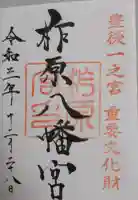 豊後一之宮 重要文化財
柞原八幡宮
令和二年十二月二十八日